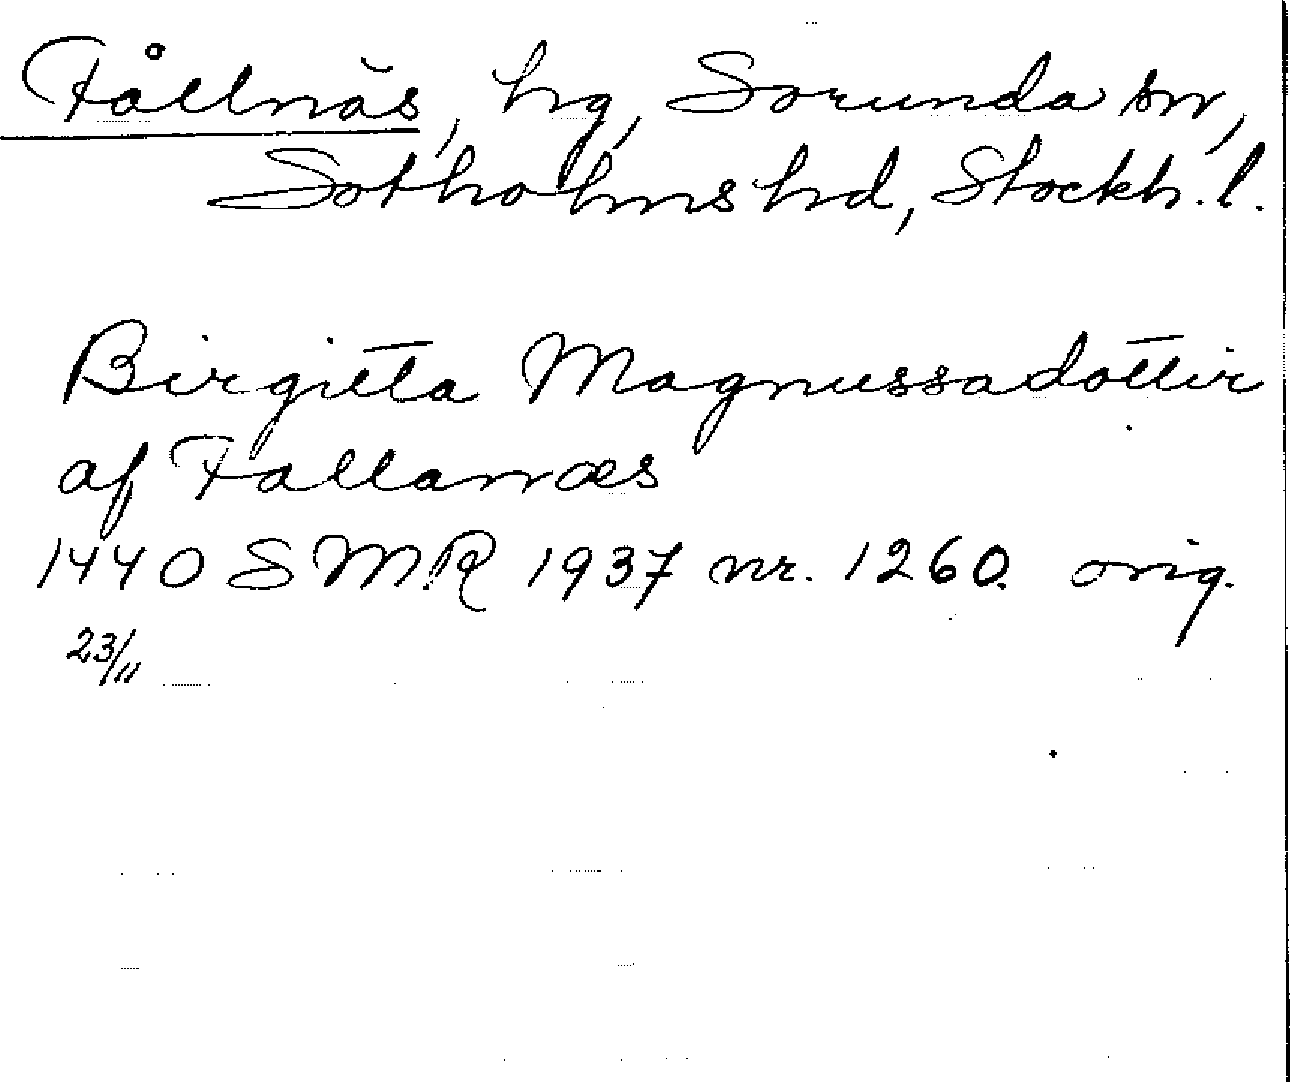 Fållnäs, hg, Sorunda sn,
Sotholms hd, Stockh. l.
Birgitta Magnussadotter
af Fallanæs
1440 SMR 1937 nr. 1260. orig.
23/11